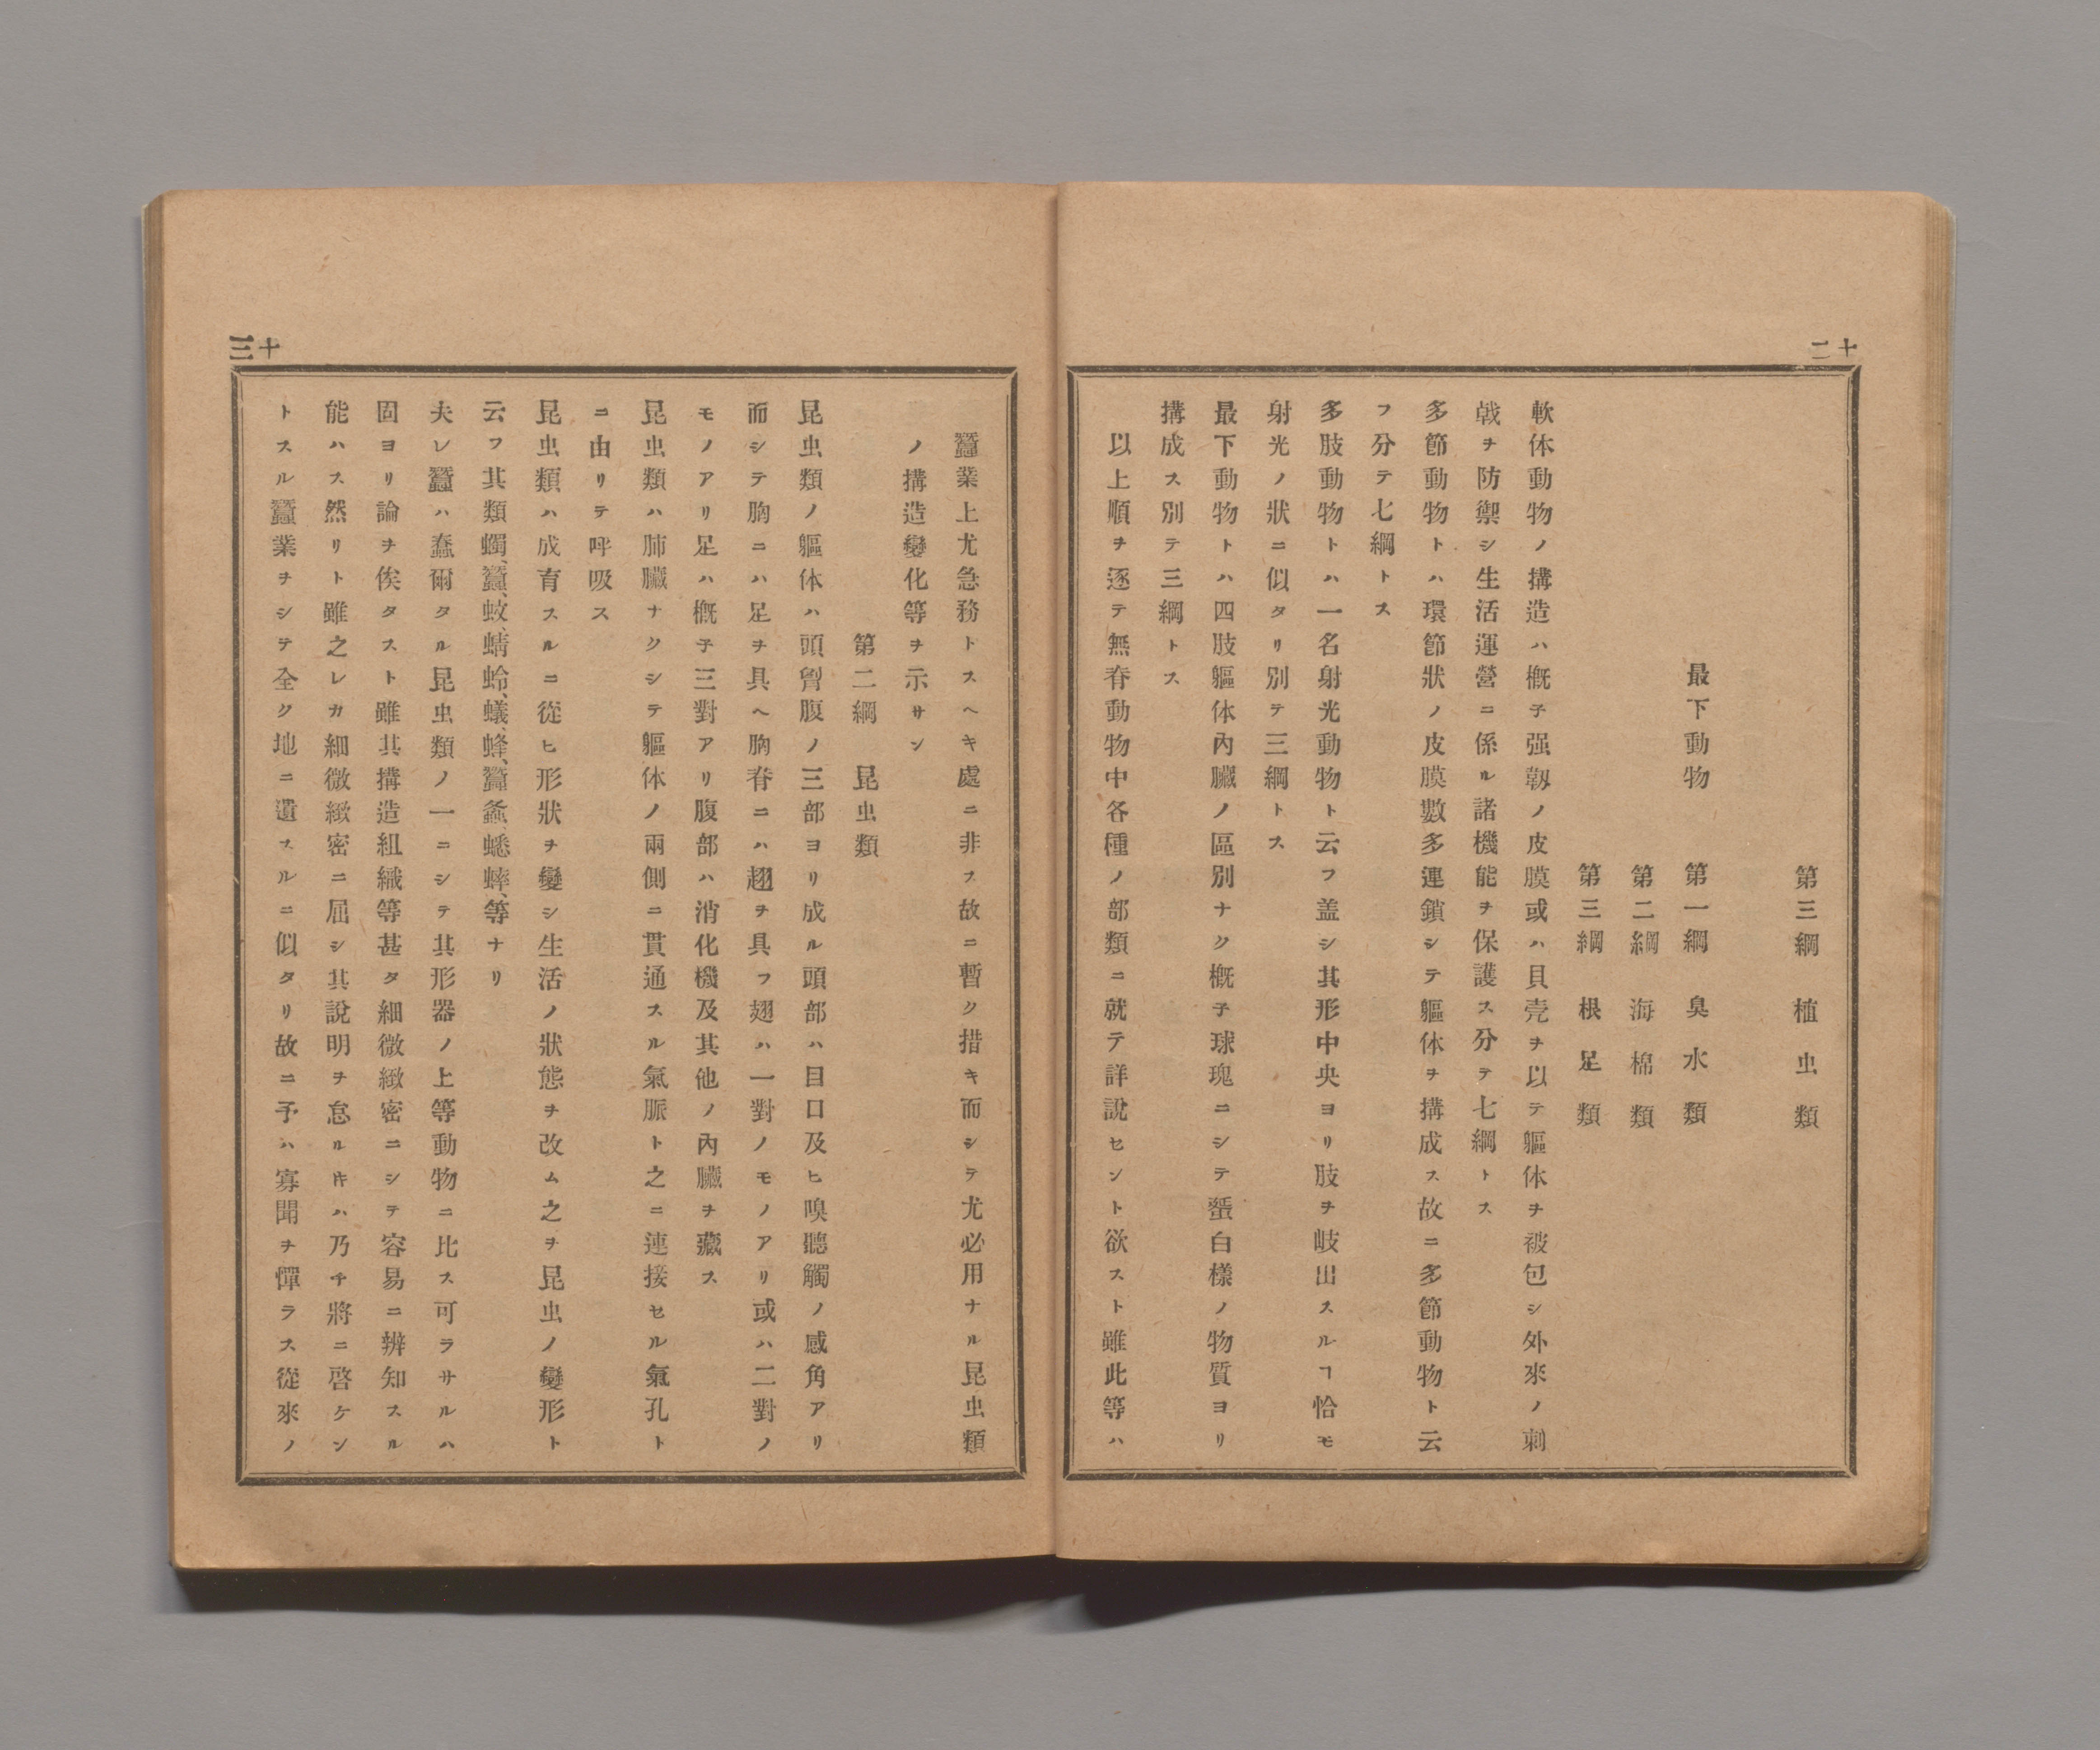 十二
第三綱 植虫類
最下動物 第一綱 臭水類
第二綱 海棉類
第三綱 根足類
軟体動物ノ搆造ハ概子强靱ノ皮膜或ハ貝壳ヲ以テ軀体ヲ被包シ外來ノ刺
戟ヲ防禦シ生活運營ニ係ル諸機能ヲ保護ス分テ七綱トス
多節動物トハ環節狀ノ皮膜數多連鎖シテ軀体ヲ搆成ス故ニ多節動物ト云
フ分テ七綱トス
多肢動物トハ一名射光動物ト云フ盖シ其形中央ヨリ肢ヲ岐出スルヿ恰モ
射光ノ狀ニ似タリ別テ三綱トス
最下動物トハ四肢軀体內臟ノ區別ナク概子球瑰ニシテ蜑白樣ノ物質ヨリ
搆成ス別テ三綱トス
以上順ヲ逐テ無脊動物中各種ノ部類ニ就テ詳說セント欲スト雖此等ハ
十三
蠶業上尤急務トスヘキ處ニ非ス故ニ暫ク措キ而シテ尤必用ナル昆虫類
ノ搆造變化等ヲ示サン
第二綱 昆虫類
昆虫類ノ軀体ハ頭胷腹ノ三部ヨリ成ル頭部ハ目口及ヒ嗅聽觸ノ感角アリ
而シテ胸ニハ足ヲ具ヘ胸脊ニハ翅ヲ具フ翅ハ一對ノモノアリ或ハ二對ノ
モノアリ足ハ概子三對アリ腹部ハ消化機及其他ノ內臟ヲ藏ス
昆虫類ハ肺臟ナクシテ軀体ノ兩側ニ貫通スル氣脈ト之ニ連接セル氣孔ト
ニ由リテ呼吸ス
昆虫類ハ成育スルニ從ヒ形狀ヲ變シ生活ノ狀態ヲ改ム之ヲ昆虫ノ變形ト
云フ其類蠋、蠶、蚊、蜻蛉、蟻、蜂、蠶螽、蟋蟀、等ナリ
夫レ蠶ハ蠢爾タル昆虫類ノ一ニシテ其形器ノ上等動物ニ比ス可ラサルハ
固ヨリ論ヲ俟タスト雖其搆造組織等甚タ細微緻密ニシテ容易ニ辨知スル
能ハス然リト雖之レカ細微緻密ニ屈シ其說明ヲ怠ルキハ乃チ將ニ啓ケン
トスル蠶業ヲシテ全ク地ニ遺スルニ似タリ故ニ予ハ寡聞ヲ憚ラス從來ノ